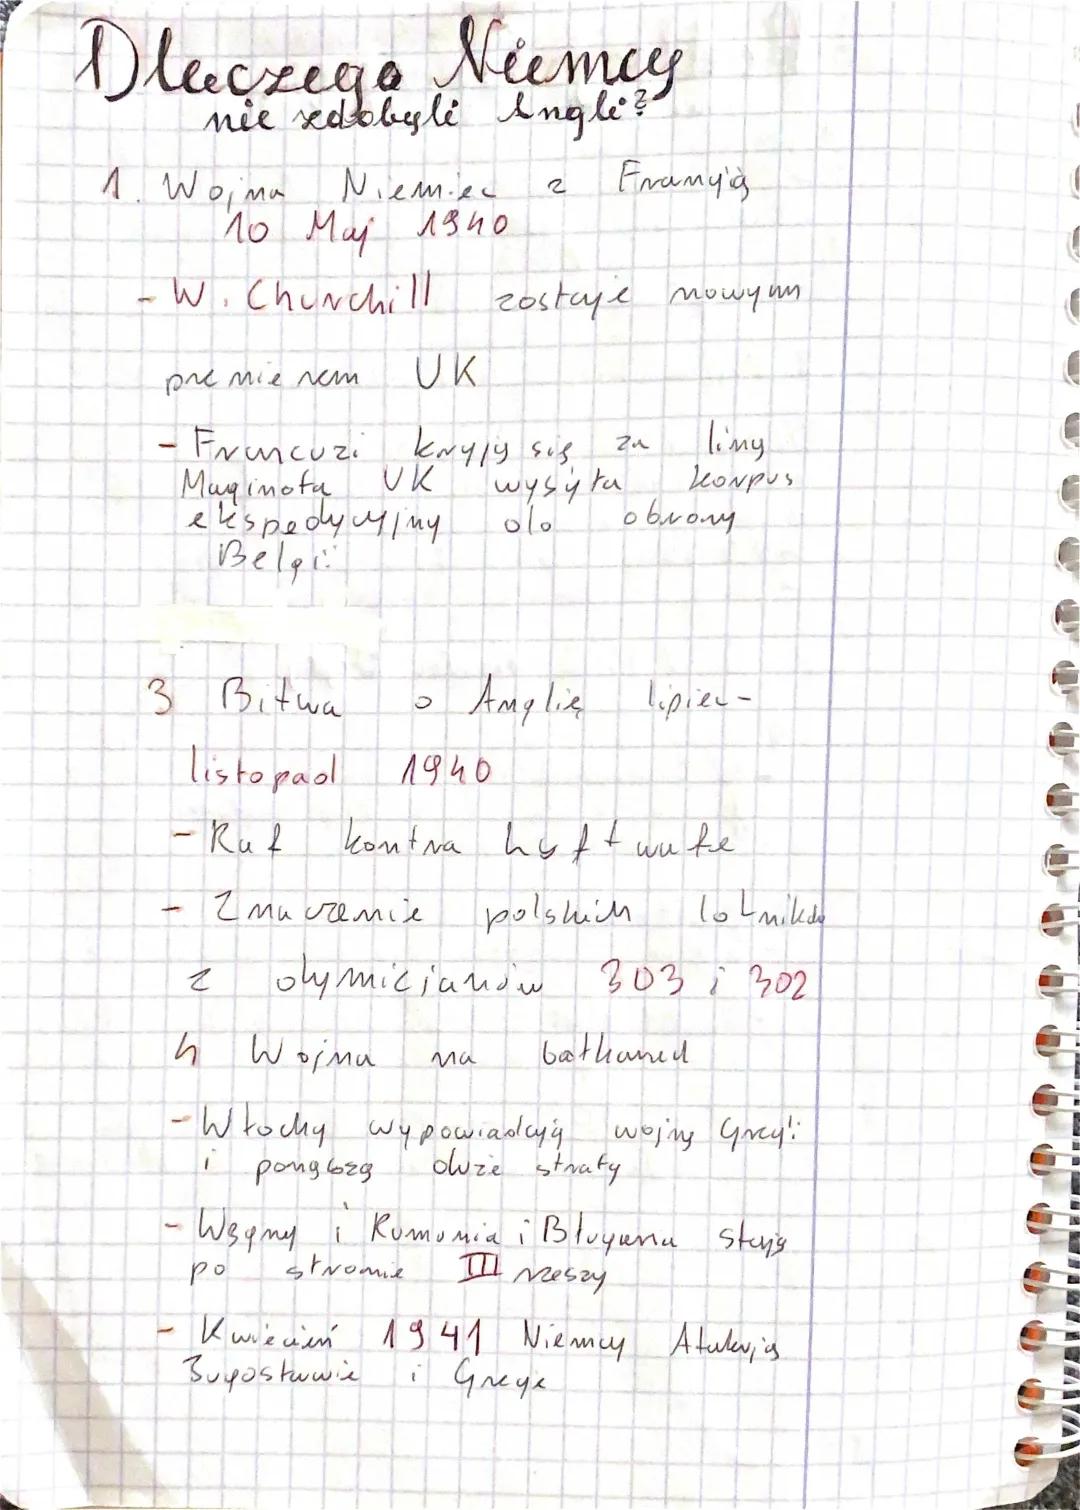 Dlaczego Niemcy
nie zdobyli Angli?
1. Wojna Niemiec z Francją
10 Maj 1940
- W. Churchill zostaje nowym
premierem UK
- Francuzi kryją się za liną
Maginota UK wysyła korpus
ekspedycyjny do obrony
Belgii
3 Bitwa o Anglię lipiec-
listopad 1940
- Raf kontra luftwafe
- Znaczenie polskich lotników
z dymicjanów 303 i 302
4 Wojna na bałkanch
- Włochy wypowiadają wojnę Grecji
i ponoszą duże straty
- Węgry i Rumunia i Bługaria stają
po stronie III rzeszy
- Kwiecień 1941 Niemcy Atakują
Jugosławie i Grecje